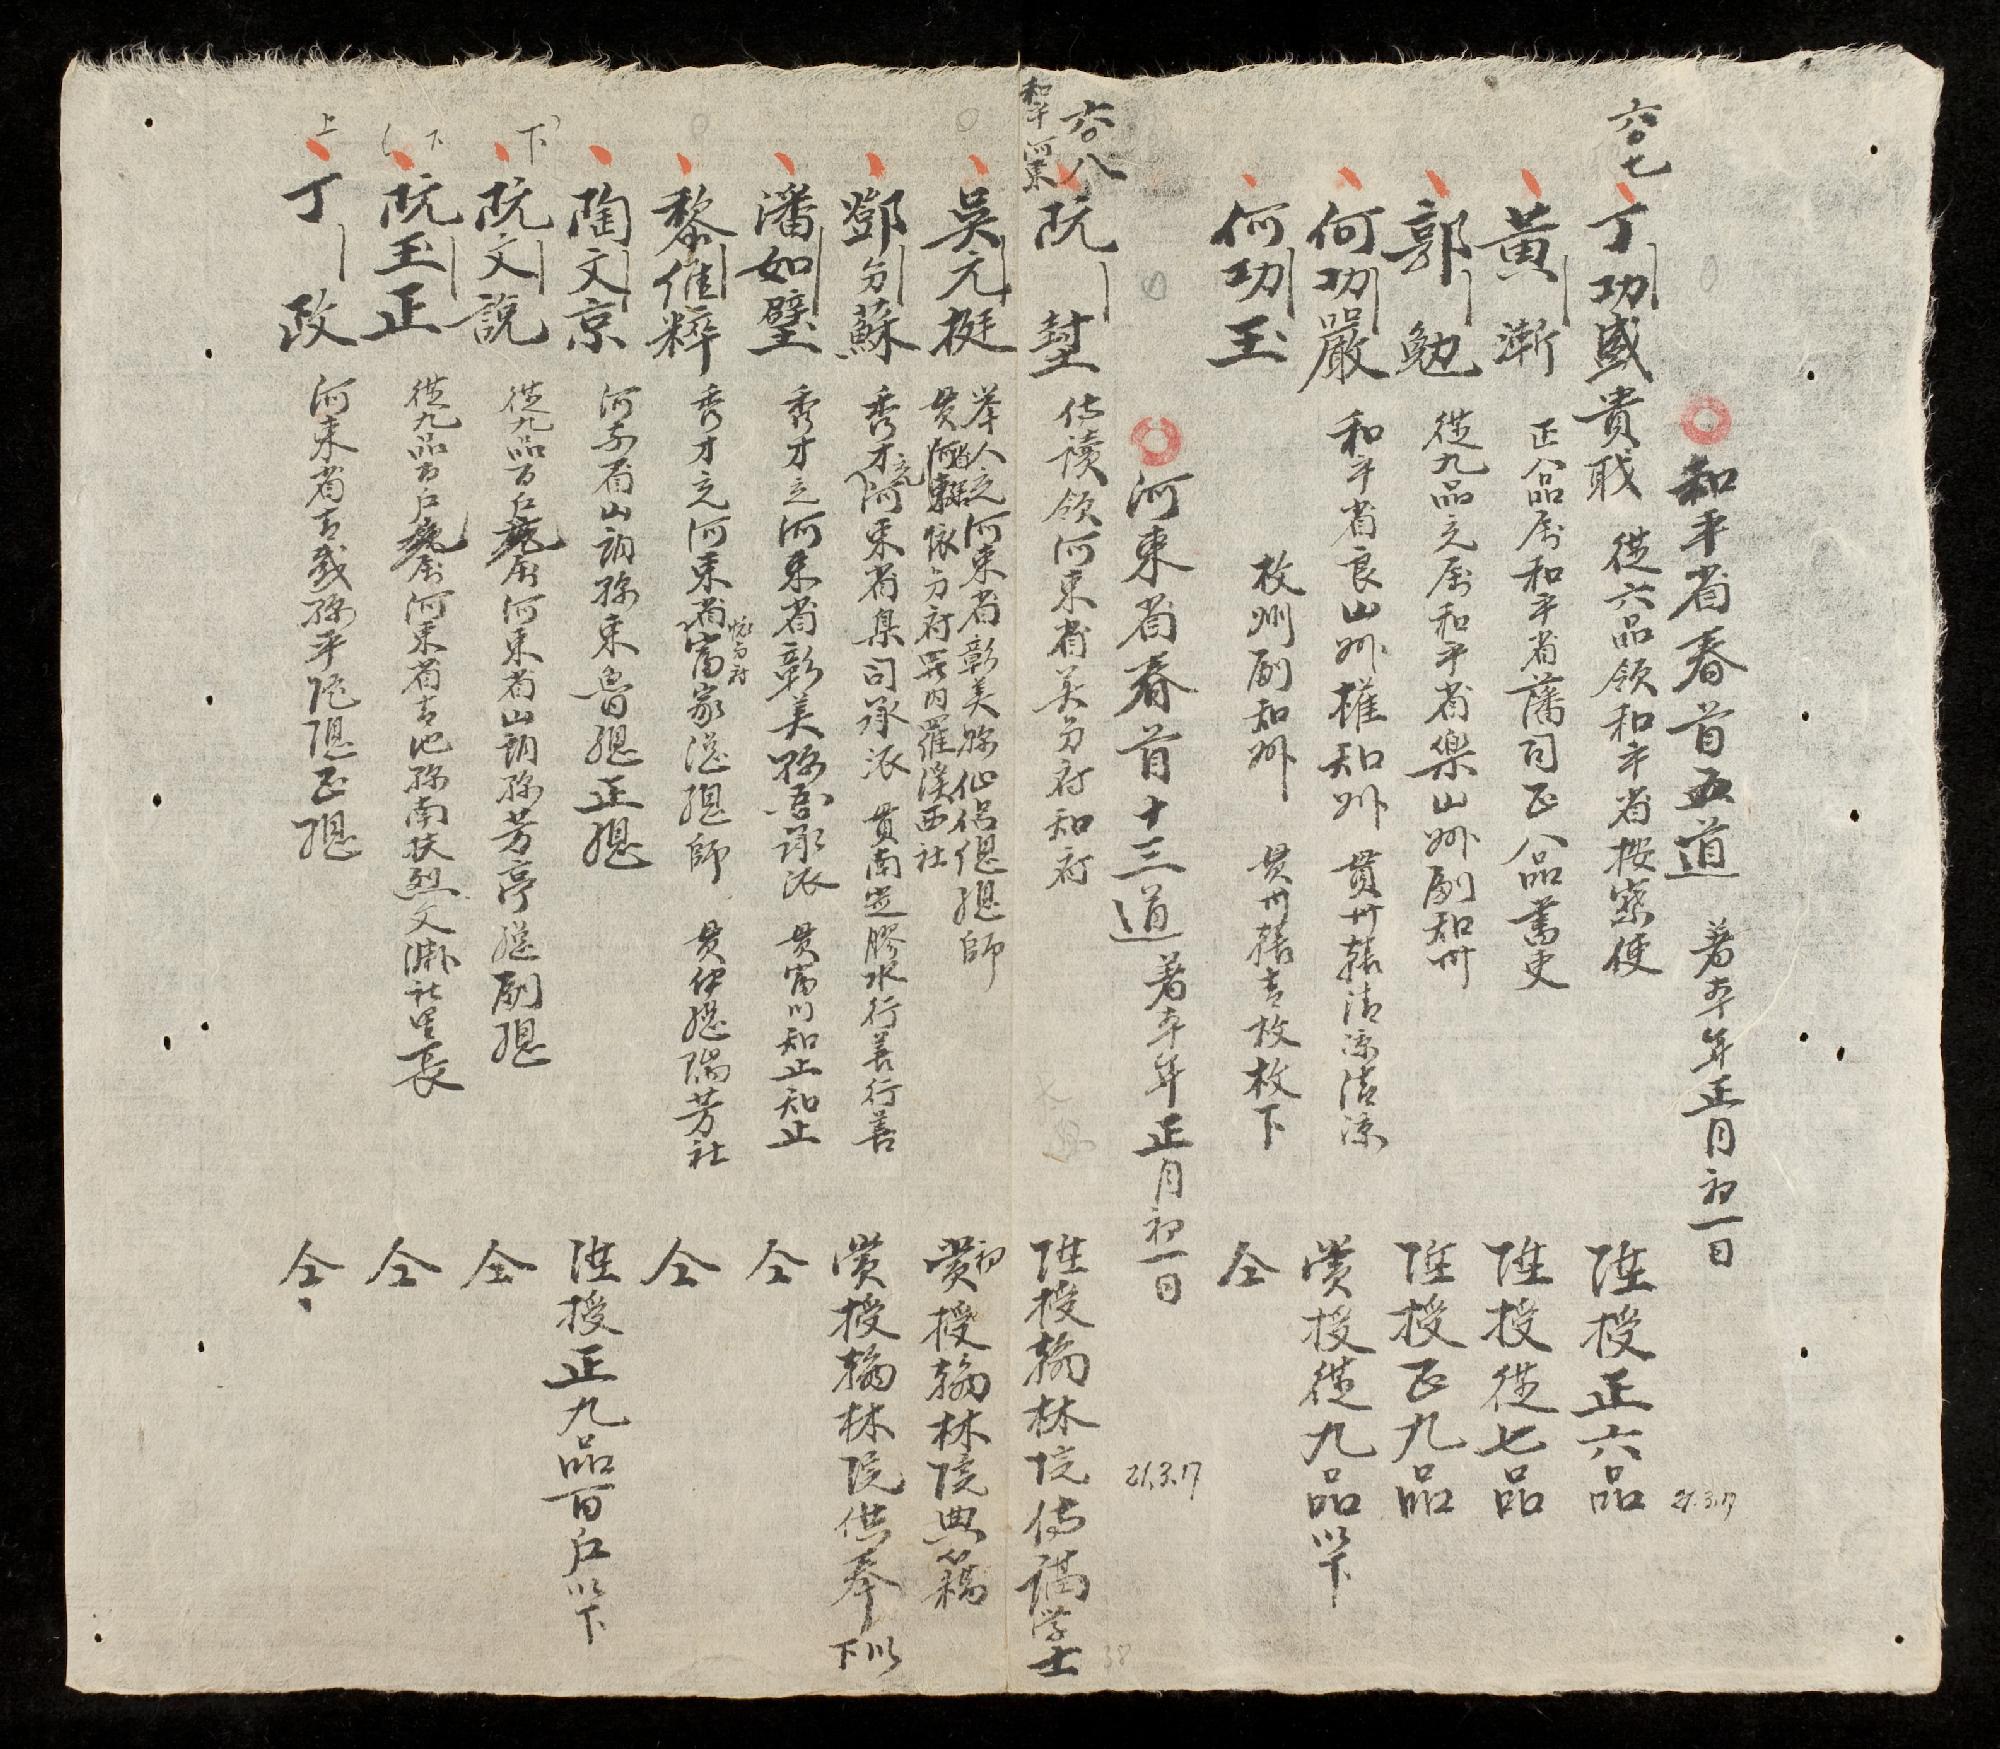 六〇七
和平省春首五道 著本年正月初一日
21.3.17
丁功盛貴戝 從六品領和平省按察使 陞授正六品
黃漸 正八品屬和平省藩司正八品書吏 陞授從七品
郭勉 從九品充屬和平省樂山州副知州 陞授正九品
何功嚴 和平省良山州權知州 貫州轄清涼清涼 賞授從九品以下
何功玉 枚州副知州 貫州轄吉枚枚下 仝
六〇八
和平 河東
河東省春首十三道 著本年正月初一日
21.3.17
阮 侍讀領河東省美分府知府 陞授翰林院侍講学士
38
吳元挺 举人充河東省彰美縣仙侶偲總師
貫河東懷分府羅內羅溪西社 初賞授翰林院典籍
鄧分蘇 秀才充河東省臬司承派 貫南定膠水行善行善 賞授翰林院供奉以下
潘如璧 秀才充河東省彰美縣承派 貫富川知止知止 仝
黎催粹 秀才充河東省富家總總師 貫伊總瑞芳社 仝
陶文京 河東省山朗縣東魯總正總 陞授正九品百戶以下
下
阮文說 從九品百戶屬河東省山朗縣芳亭總副總 仝
下
阮玉正 從九品百戶屬河東省青池縣南扶烈文淵社里長 仝
上
丁政 河東省青威縣平陀總正總 仝